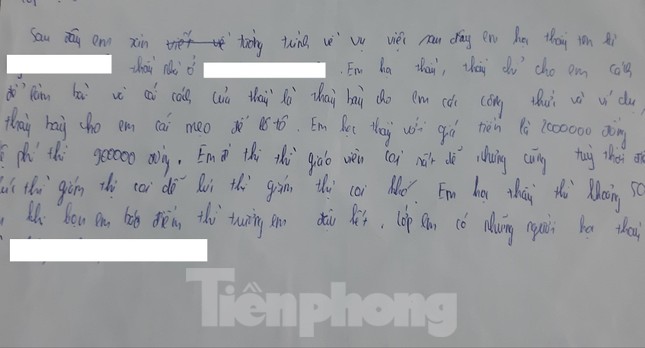 Sau đây em xin viết về tường trình về vụ việc sau đây em học thầy tên là
thầy nhà ở . Em học thầy, thầy chỉ cho em cách
để làm bài và cái cách của thầy là thầy bày cho em các công thức và ví dụ,
thầy bày cho em cái mẹo để lô tô. Em học thầy với giá tiền là 2000000 đồng
lệ phí thi 900000 đồng. Em đi thi thì giáo viên coi rất dễ nhưng cũng tuỳ thời
thì giám thị coi dễ lúc thì giám thị coi khó. Em học thầy thì khoảng 50
khi bọn em báo điểm thì trường em đậu hết. Lớp em có những người học thầy
Tiênphong